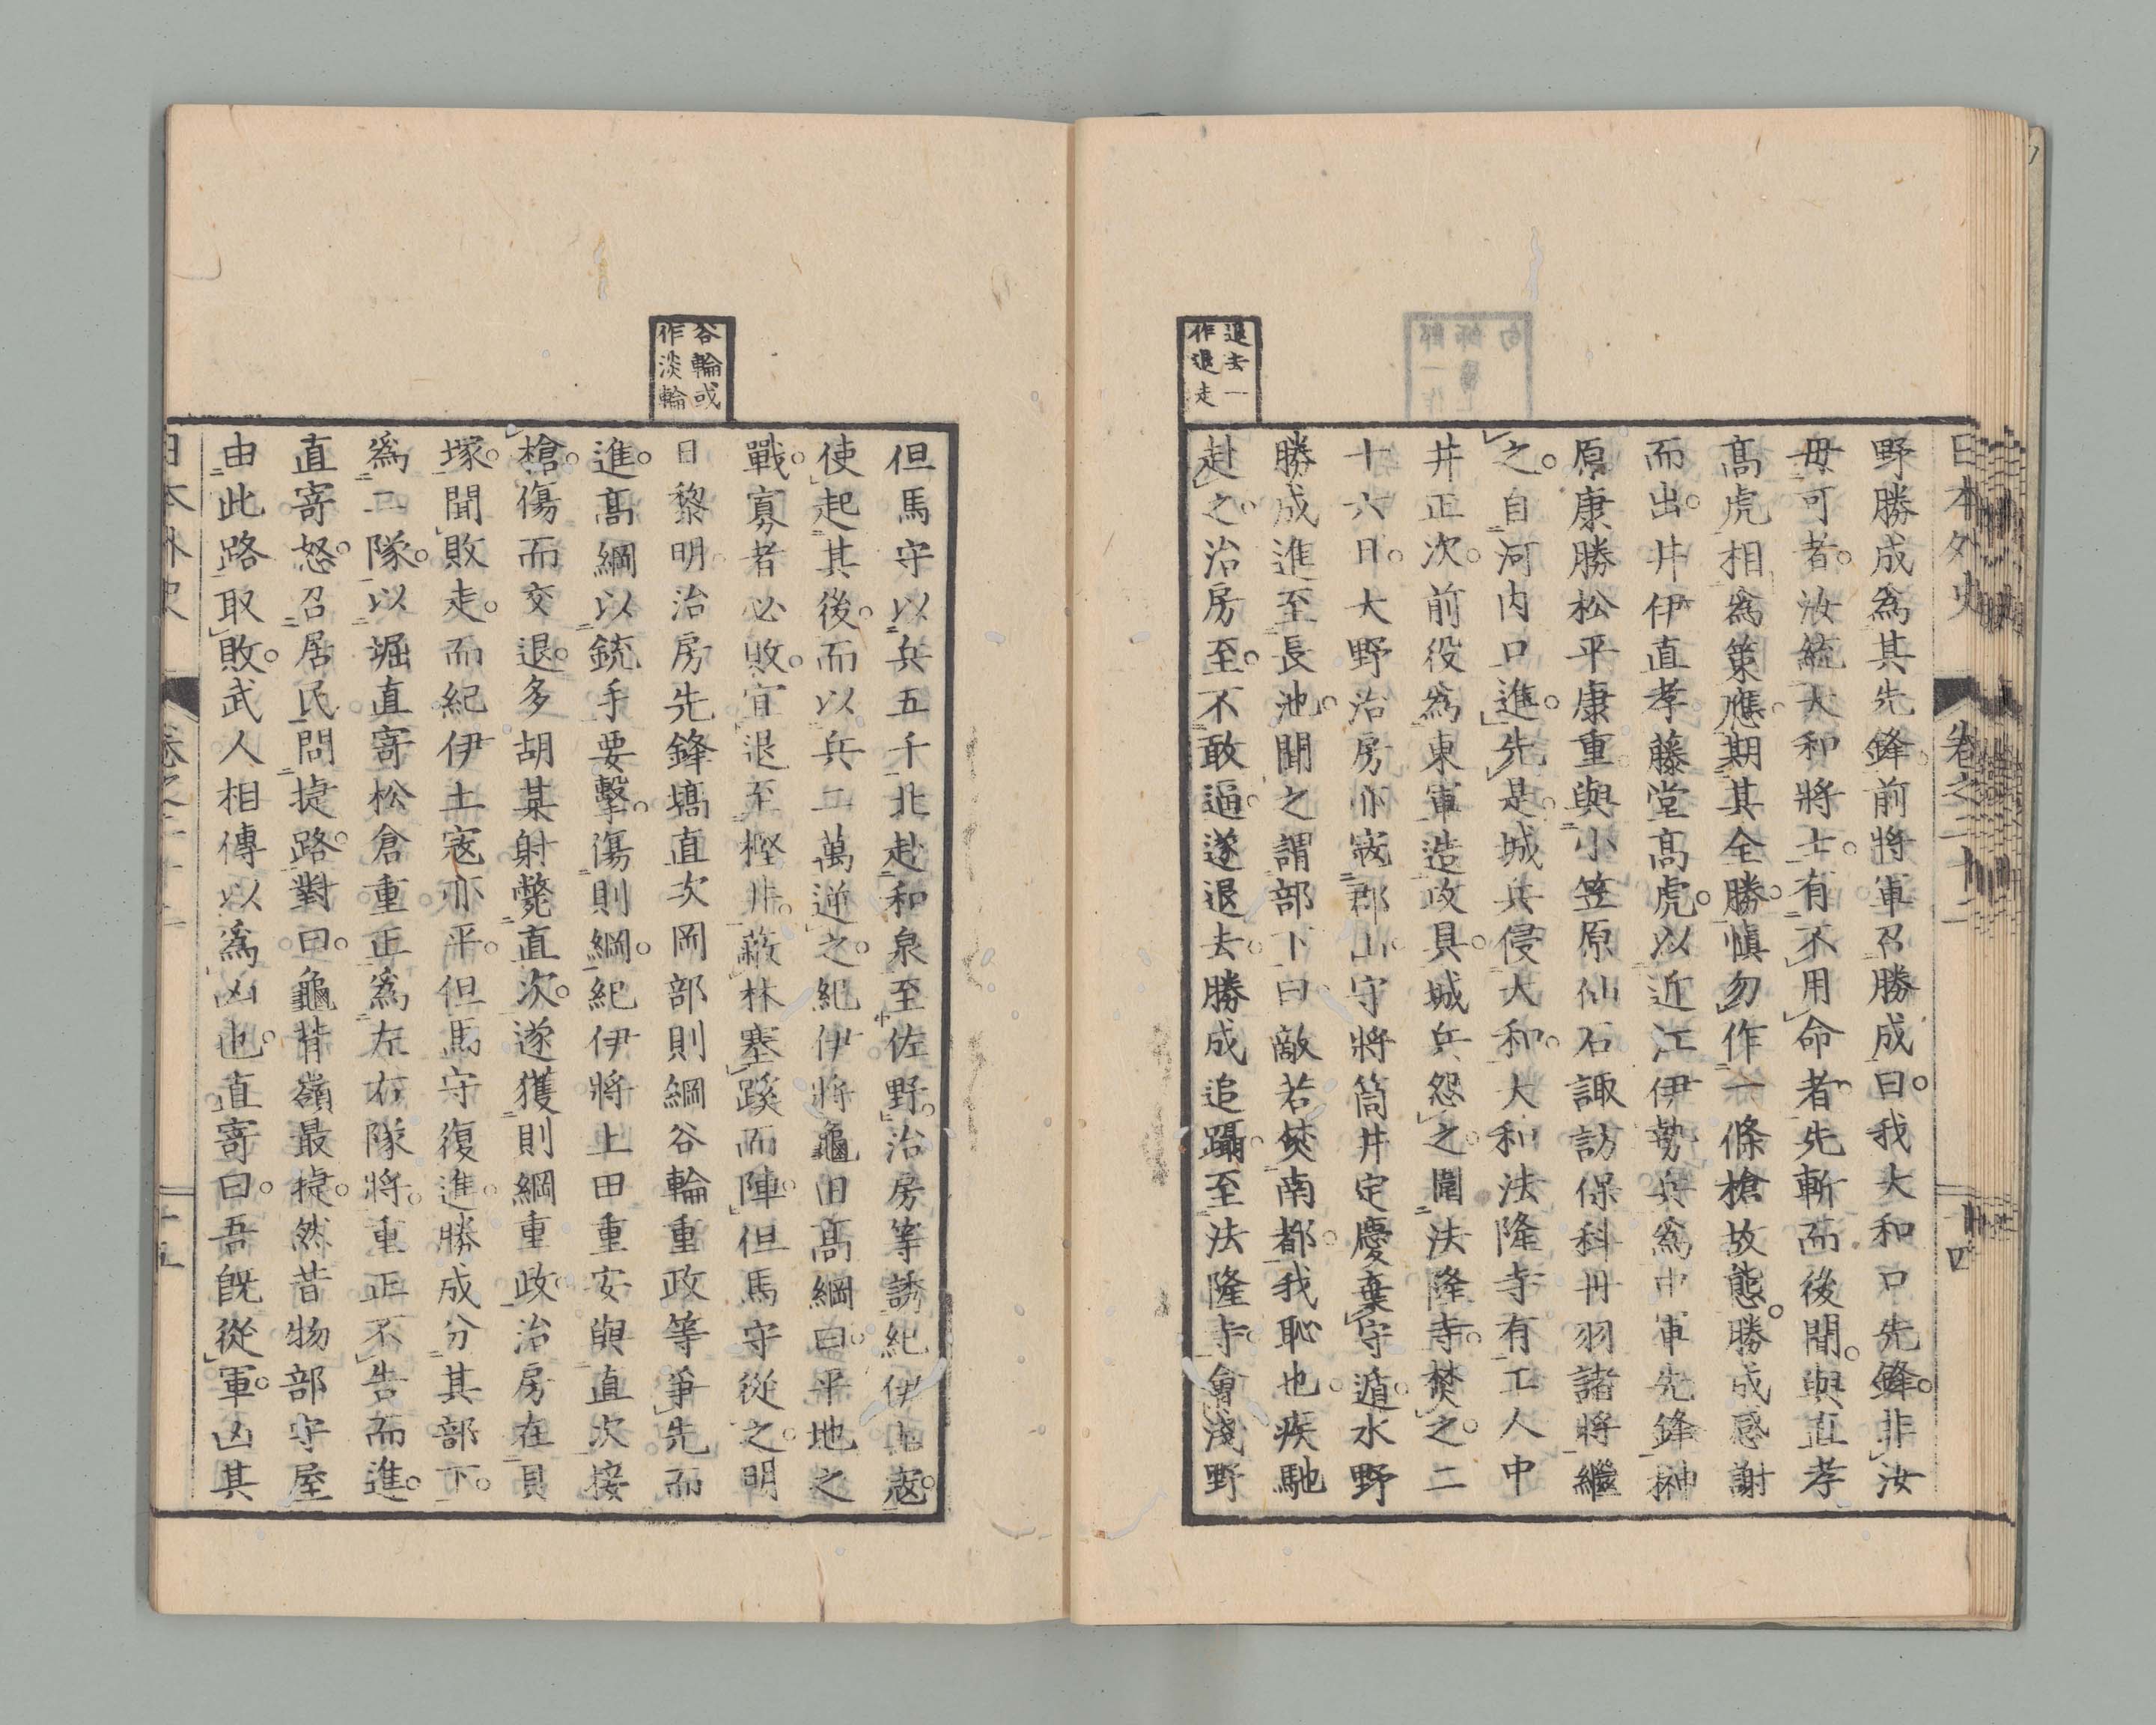 日本外史 卷之二十二 十四
退去一
作退走
野勝成爲其先鋒前將軍召勝成曰我大和口先鋒非汝
毋可者汝統大和將士有不用命者先斬而後聞與直孝
高虎相爲策應期其全勝愼勿作一條槍故態勝成感謝
而出井伊直孝藤堂高虎以近江伊勢兵爲中軍先鋒榊
原康勝松平康重與小笠原仙石諏訪保科丹羽諸將繼
之自河内口進先是城兵侵大和大和法隆寺有工人中
井正次前役爲東軍造攻具城兵怨之圍法隆寺焚之二
十六日大野治房亦寇郡山守將筒井定慶棄守遁水野
勝成進至長池聞之謂部下曰敵若焚南都我恥也疾馳
赴之治房至不敢逼遂退去勝成追躡至法隆寺會淺野
谷輪或
作淡輪
但馬守以兵五千北赴和泉至佐野治房等誘紀伊土寇
使起其後而以兵二萬逆之紀伊將龜田高綱曰平地之
戰寡者必敗宜退至樫井蔽林塞蹊而陣但馬守從之明
日黎明治房先鋒塙直次岡部則綱谷輪重政等爭先而
進高綱以銃手要擊傷則綱紀伊將上田重安與直次接
槍傷而交退多胡某射斃直次遂獲則綱重政治房在貝
塚聞敗走而紀伊土寇亦平但馬守復進勝成分其部下
爲二隊以堀直寄松倉重正爲左右隊將重正不告而進
直寄怒召居民問捷路對曰龜背嶺最捷然昔物部守屋
由此路取敗武人相傳以爲凶也直寄曰吾既從軍凶其
日本外史 卷之二十二 十五